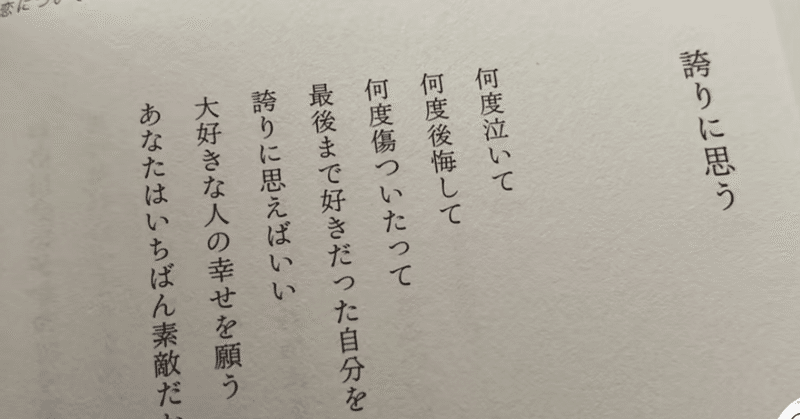 誇りに思う
何度泣いて
何度後悔して
何度傷ついたって
最後まで好きだった自分を
誇りに思えばいい
大好きな人の幸せを願う
あなたはいちばん素敵だか
恋につい